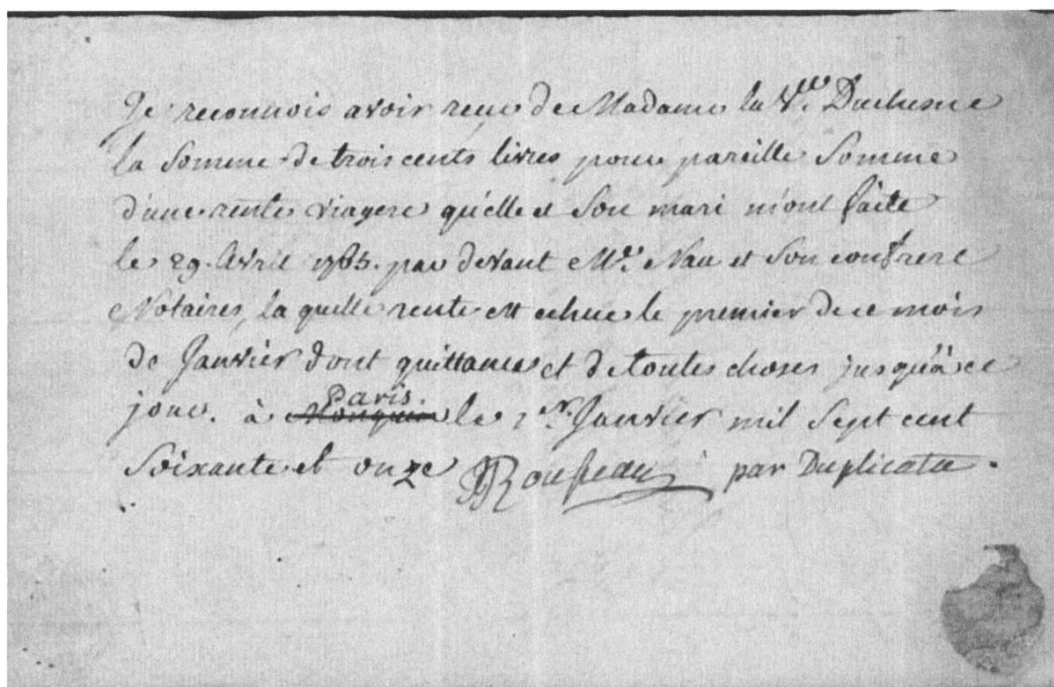 Je reconnois avoir receu de Madame la V.ve Duchesne
la Somme de trois cents livres pour pareille Somme
d'une rente viagere qu'elle et Son mari m'ont faite
le 29. Avril 1765. par devant Me. Nau et Son confrere
Notaires, la quelle rente est echue le premier de ce mois
de Janvier dont quittance et de toutes choses jusqu'à ce
jour. à Paris. le 1er. Janvier mil Sept cent
Soixante et onze JJRousseau par Duplicata.